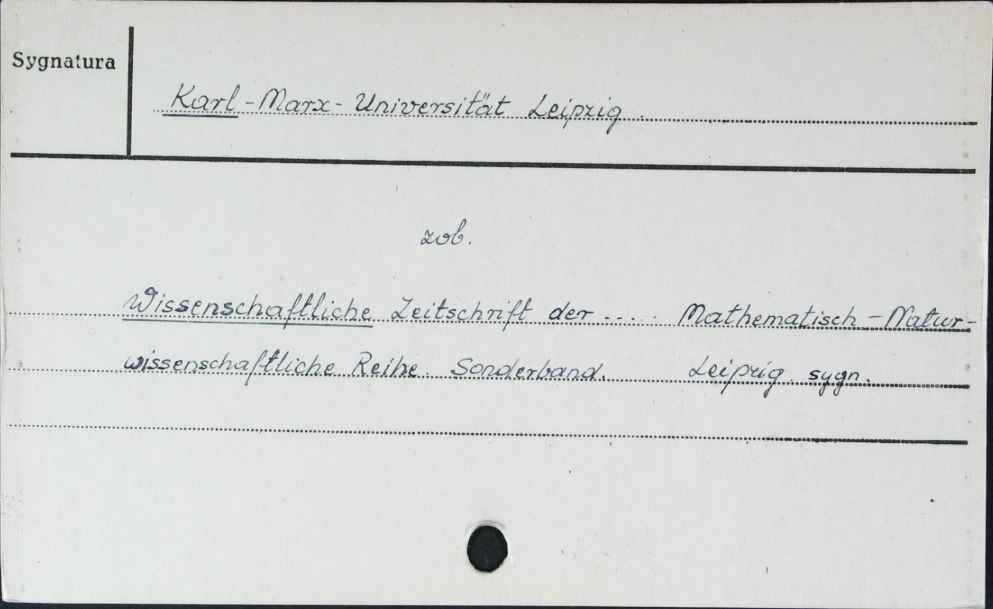 Sygnatura
Karl-Marx-Universität Leipzig.
zob.
Wissenschaftliche Zeitschrift der .... Mathematisch-Natur-
wissenschaftliche Reihe. Sonderband. Leipzig. sygn.